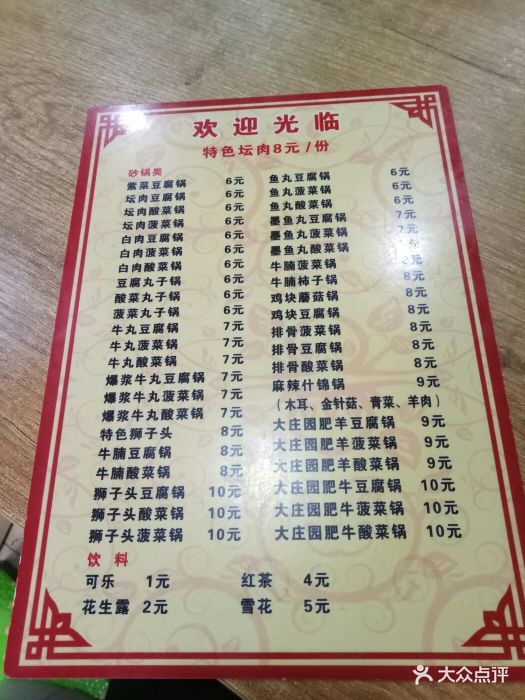 欢迎光临
特色坛肉8元/份
砂锅类
紫菜豆腐锅 6元
坛肉豆腐锅 6元
坛肉酸菜锅 6元
坛肉菠菜锅 6元
白肉豆腐锅 6元
白肉菠菜锅 6元
白肉酸菜锅 6元
豆腐丸子锅 6元
酸菜丸子锅 6元
菠菜丸子锅 6元
牛丸豆腐锅 7元
牛丸菠菜锅 7元
牛丸酸菜锅 7元
爆浆牛丸豆腐锅 7元
爆浆牛丸菠菜锅 7元
爆浆牛丸酸菜锅 7元
特色狮子头 8元
牛腩豆腐锅 8元
牛腩酸菜锅 8元
狮子头豆腐锅 10元
狮子头酸菜锅 10元
狮子头菠菜锅 10元
鱼丸豆腐锅 6元
鱼丸菠菜锅 6元
鱼丸酸菜锅 6元
墨鱼丸豆腐锅 7元
墨鱼丸菠菜锅 7元
墨鱼丸酸菜锅 元
牛腩菠菜锅 8元
牛腩柿子锅 8元
鸡块蘑菇锅 8元
鸡块豆腐锅 8元
排骨菠菜锅 8元
排骨豆腐锅 8元
排骨酸菜锅 8元
麻辣什锦锅 9元
(木耳、金针菇、青菜、羊肉)
大庄园肥羊豆腐锅 9元
大庄园肥羊菠菜锅 9元
大庄园肥羊酸菜锅 9元
大庄园肥牛豆腐锅 10元
大庄园肥牛菠菜锅 10元
大庄园肥牛酸菜锅 10元
饮料
可乐 1元 红茶 4元
花生露 2元 雪花 5元
大众点评